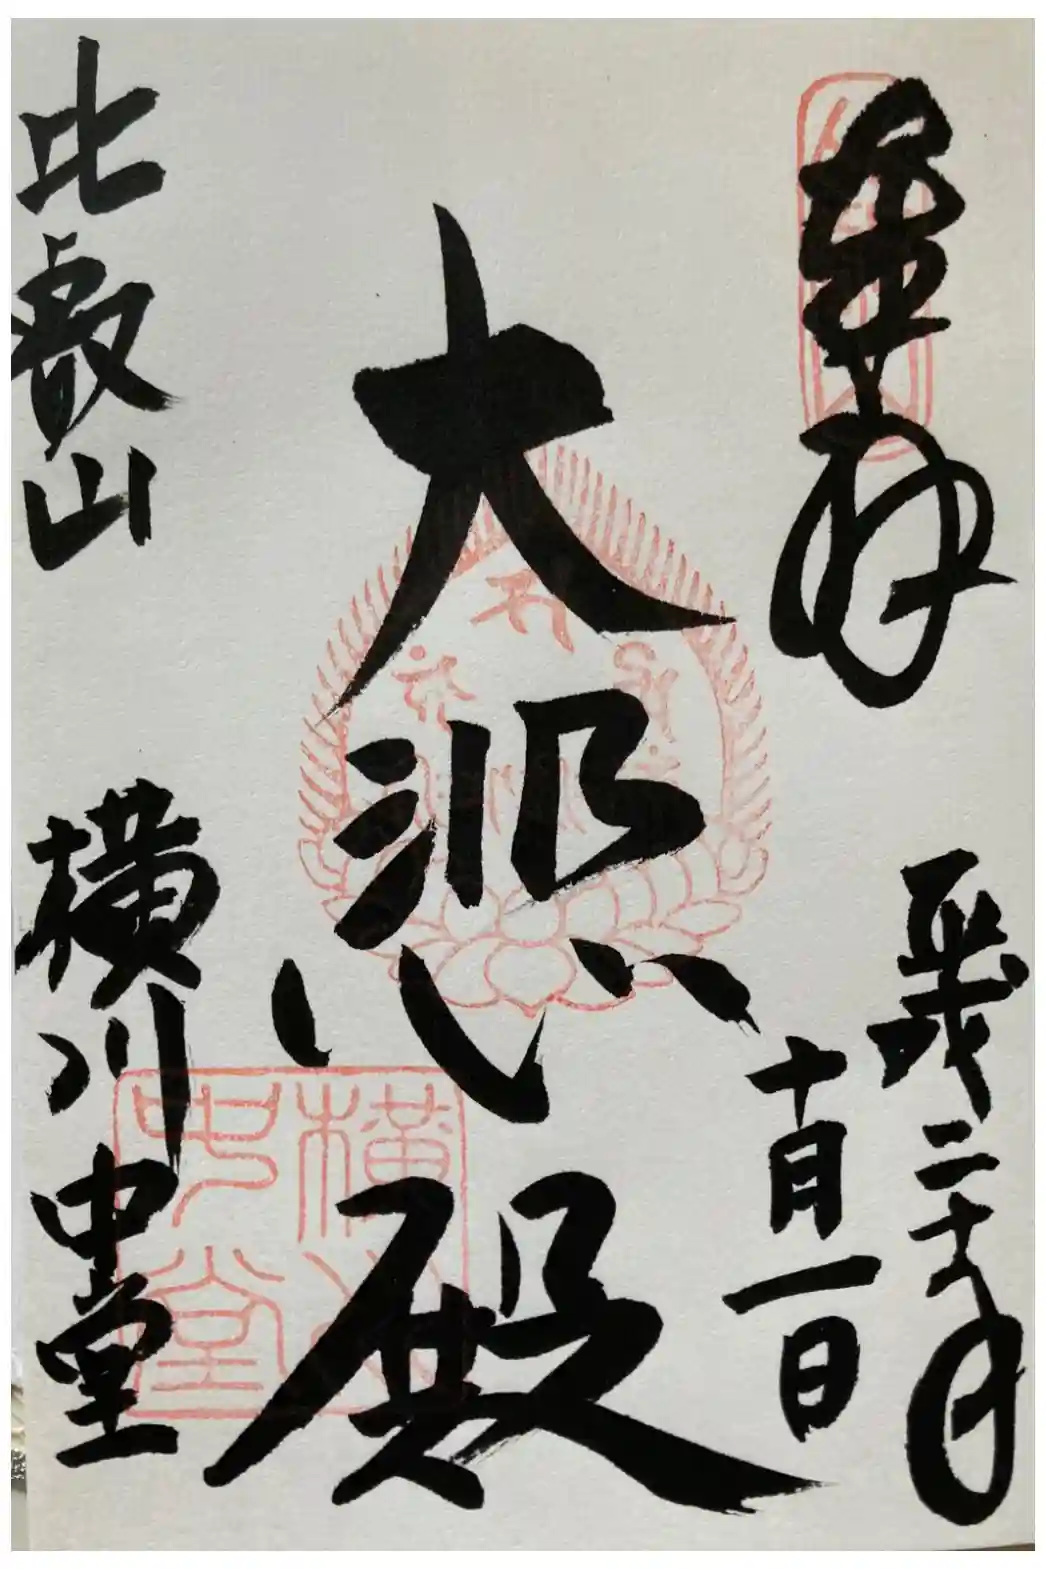 奉拝
平成二十年
十月一日
大悲殿
比叡山 横川中堂
横川
中堂